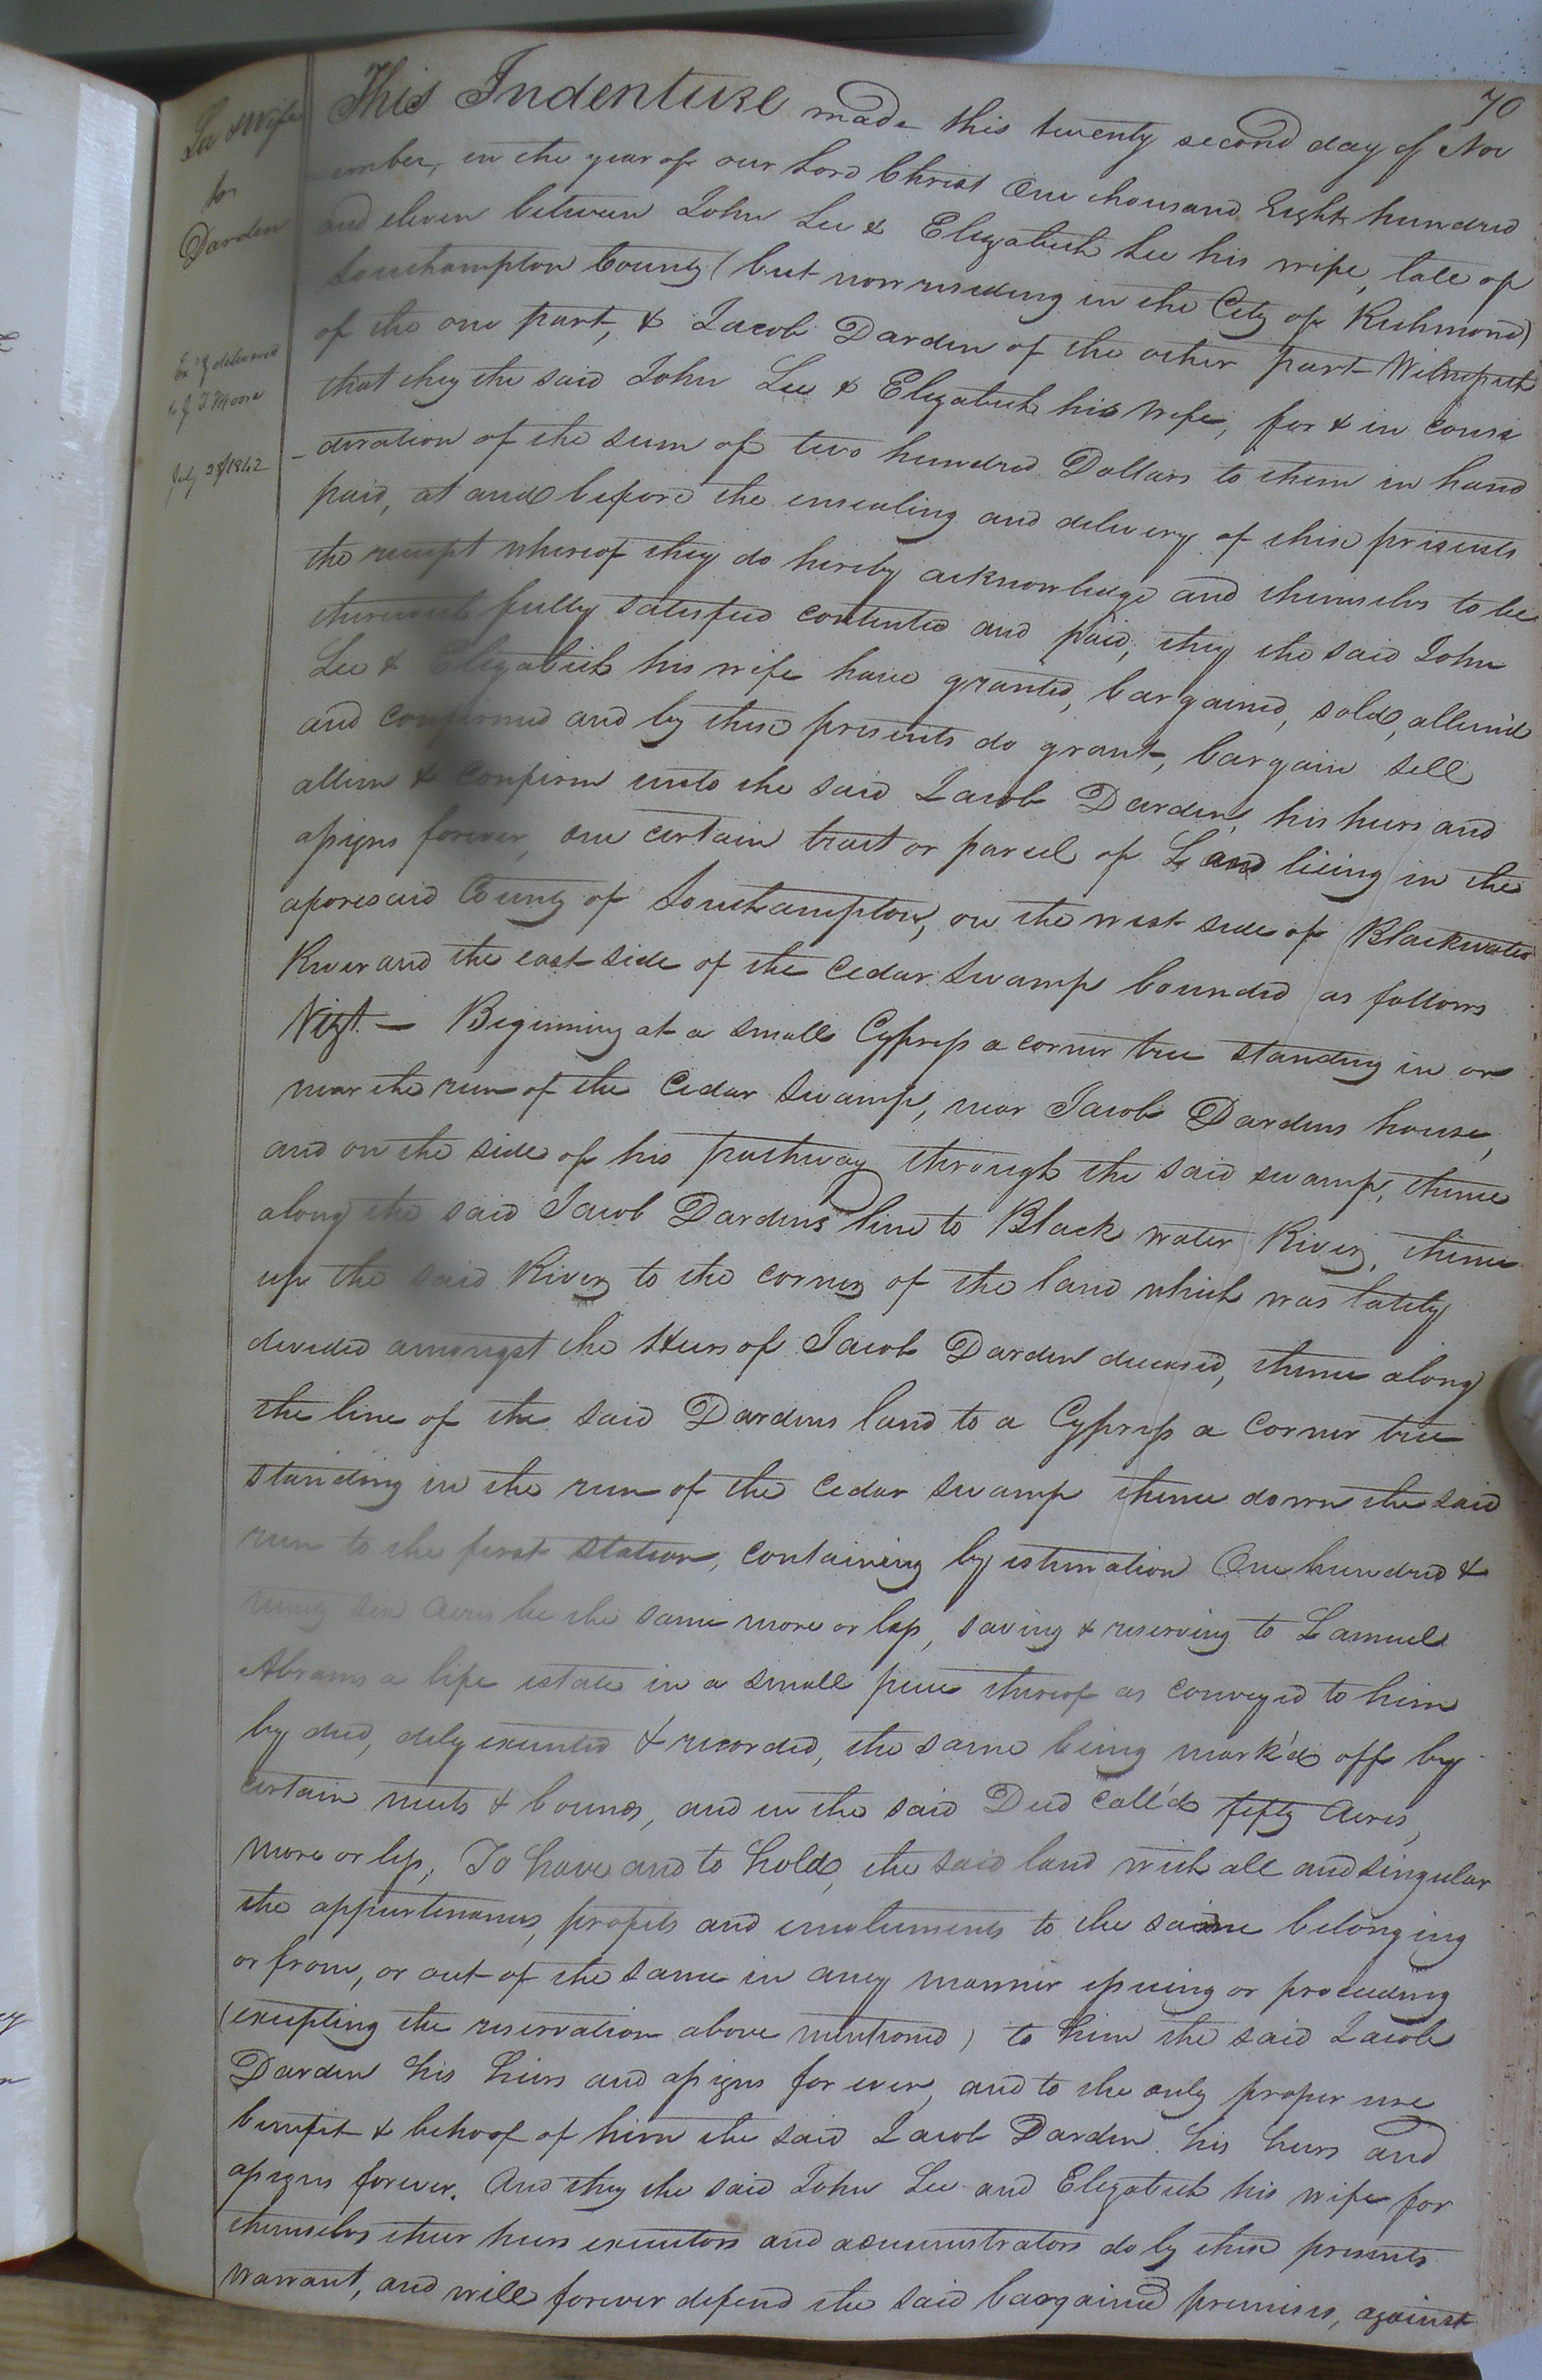 70
Lee & Wife
to
Darden
Ex'd & delivered
to J. T. Moore
July 28/1842
This Indenture made this twenty second day of Nov
=ember, in the year of our Lord Christ One thousand Eight hundred
and eleven between John Lee & Elizabeth Lee his wife, late of
Southampton County (but now residing in the City of Richmond)
of the one part, & Jacob Darden of the other part Witnesseth
that they the said John Lee & Elizabeth his Wife, for & in consi
-deration of the sum of two hundred Dollars to them in hand
paid, at and before the ensealing and delivery of these presents
the receipt whereof they do hereby acknowledge and themselves to be
therewith fully satisfied contented and paid, they the said John
Lee & Elizabeth his wife have granted, bargained, sold, aliened
and confirmed and by these presents do grant, bargain sell
alien & confirm unto the said Jacob Darden, his heirs and
assigns forever, one certain tract or parcel of Land lieing in the
aforesaid County of Southampton, on the west side of Blackwater
River and the east side of the Cedar Swamp bounded as follows
Vizt. — Beginning at a small Cypress a corner tree standing in or
near the run of the Cedar Swamp, near Jacob Dardens house,
and on the side of his pathway through the said swamp, thence
along the said Jacob Dardens line to Black water River, thence
up the said River to the corner of the land which was lately
devided amongst the Heirs of Jacob Darden deceased, thence along
the line of the said Dardens land to a Cypress a corner tree
standing in the run of the Cedar Swamp thence down the said
run to the first Station, containing by estimation One hundred &
ninety six Acres be the same more or less, saving & reserving to Lamuel
Abrams a life estate in a small piece thereof as conveyed to him
by deed, duly executed & recorded, the same being mark'd off by
certain meets & bounds, and in the said Deed call'd fifty Acres,
more or less, To have and to hold, the said land with all and singular
the appurtenances, profits and emoluments to the same belonging
or from, or out of the same in any manner issuing or proceeding
(excepting the reservation above mentioned) to him the said Jacob
Darden his heirs and assigns for ever, and to the only proper use
benefit & behoof of him the said Jacob Darden his heirs and
assigns forever. And they the said John Lee and Elizabeth his wife for
themselves their heirs executors and administrators do by these presents
warrant, and will forever defend the said bargained premises, against